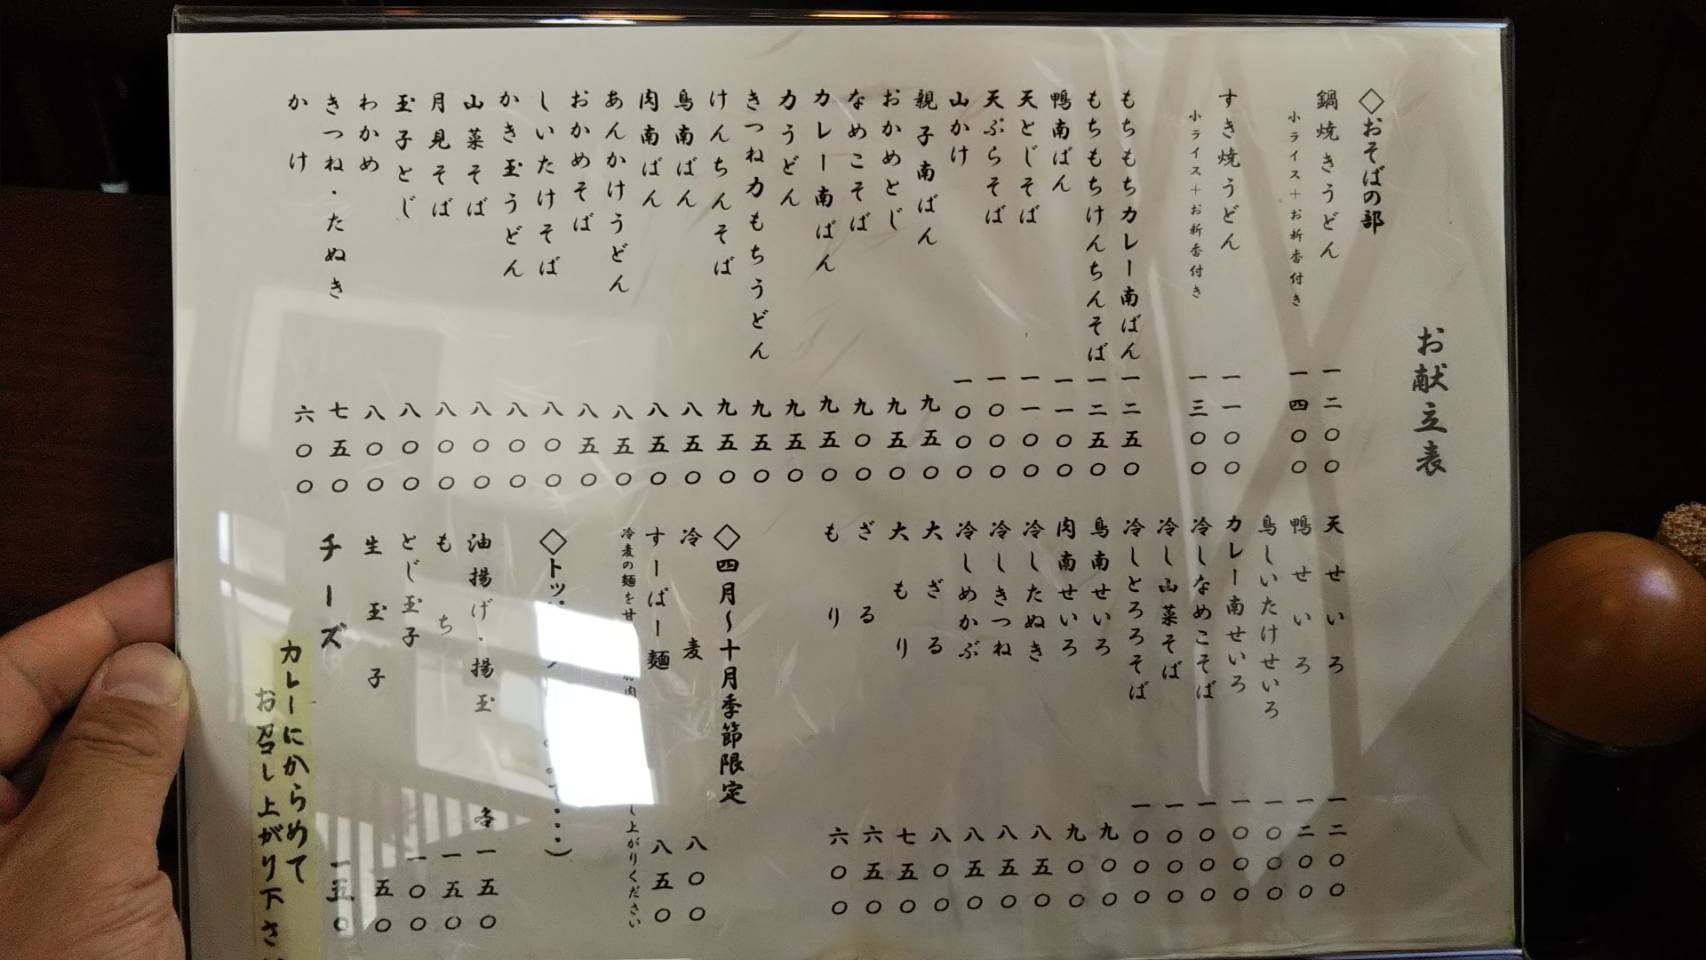 お献立表
◇おそばの部
鍋焼きうどん 一二〇〇
小ライス+お新香付き 一四〇〇
すき焼うどん 一一〇〇
小ライス+お新香付き 一三〇〇
もちもちカレー南ばん 一二五〇
もちもちけんちんそば 一二五〇
鴨南ばん 一一〇〇
天とじそば 一一〇〇
天ぷらそば 一〇〇〇
山かけ 一〇〇〇
親子南ばん 九五〇
おかめとじ 九五〇
なめこそば 九〇〇
カレー南ばん 九五〇
力うどん 九五〇
きつね力もちうどん 九五〇
けんちんそば 九五〇
鳥南ばん 八五〇
肉南ばん 八五〇
あんかけうどん 八五〇
おかめそば 八五〇
しいたけそば 八〇〇
かき玉うどん 八〇〇
山菜そば 八〇〇
月見そば 八〇〇
玉子とじ 八〇〇
わかめ 八〇〇
きつね・たぬき 七五〇
かけ 六〇〇
天せいろ 一二〇〇
鴨せいろ 一二〇〇
鳥しいたけせいろ 一〇〇〇
カレー南せいろ 一〇〇〇
冷しなめこそば 一〇〇〇
冷し山菜そば 一〇〇〇
冷しとろろそば 一〇〇〇
鳥南せいろ 九〇〇
肉南せいろ 九〇〇
冷したぬき 八五〇
冷しきつね 八五〇
冷しめかぶ 八五〇
大ざる 八〇〇
大もり 七五〇
ざる 六五〇
もり 六〇〇
◇四月〜十月季節限定
冷麦 八〇〇
すーぱー麺 八五〇
冷麦の麺を甘 肉 し上がりください
◇トッ
油揚げ・揚玉 各一五〇
もち 一五〇
とじ玉子 一〇〇
生玉子 五〇
チーズ 一五〇
カレーにからめて
お召し上がり下さ